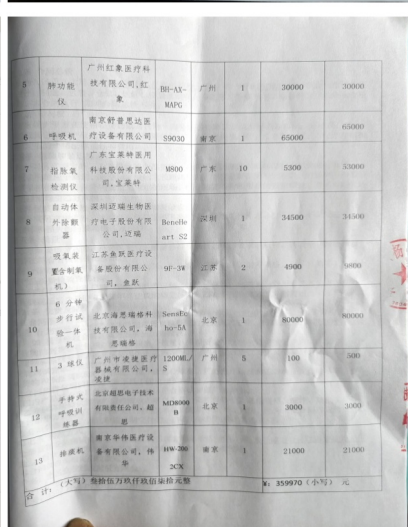 5 肺功能仪 广州红象医疗科技有限公司,红象 BH-AX-MAPG 广州 1 30000 30000
6 呼吸机 南京舒普思达医疗设备有限公司 S9030 南京 1 65000 65000
7 指脉氧检测仪 广东宝莱特医用科技股份有限公司,宝莱特 M800 广东 10 5300 53000
8 自动体外除颤器 深圳迈瑞生物医疗电子股份有限公司,迈瑞 BeneHeart S2 深圳 1 34500 34500
9 吸氧装置(含制氧机) 江苏鱼跃医疗设备股份有限公司,鱼跃 9F-3W 江苏 2 4900 9800
10 6分钟步行试验一体机 北京海思瑞格科技有限公司,海思瑞格 SensEcho-5A 北京 1 80000 80000
11 3球仪 广州市凌捷医疗器械有限公司,凌捷 1200ML/S 广州 5 100 500
12 手持式呼吸训练器 北京超思电子技术有限责任公司,超思 MD8000B 北京 1 3000 3000
13 排痰机 南京华伟医疗设备有限公司,伟华 HW-2002CX 南京 1 21000 21000
合计:(大写)叁拾伍万玖仟玖佰柒拾元整 ¥:359970(小写)元